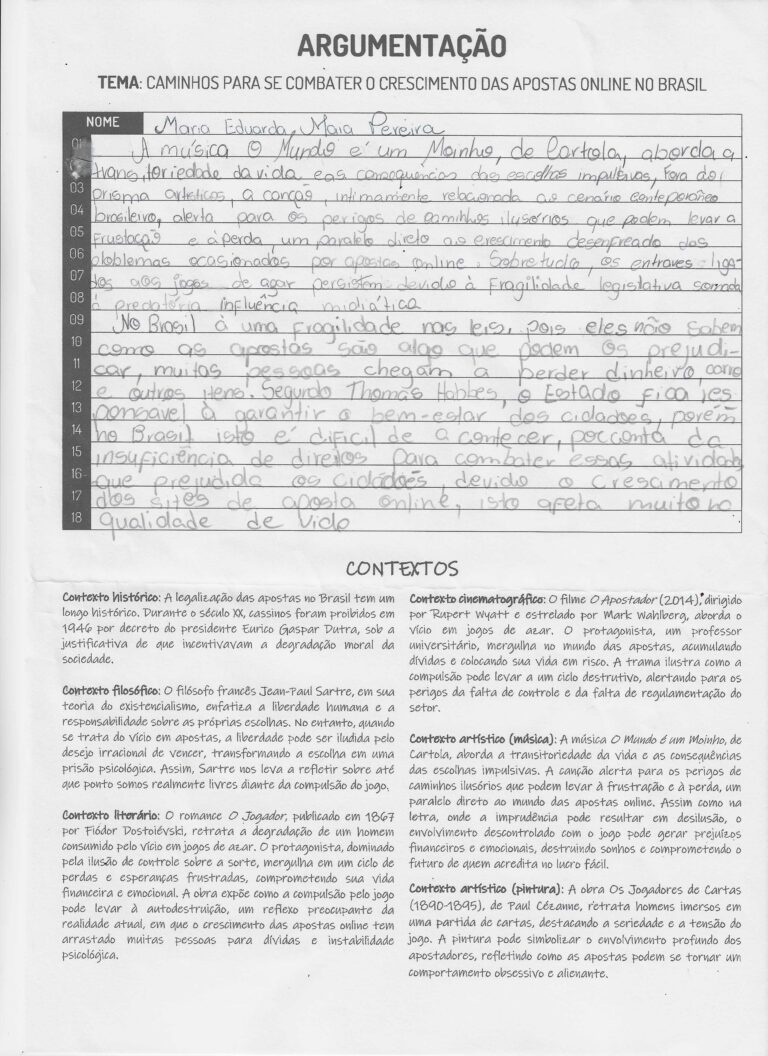 ARGUMENTAÇÃO
TEMA: CAMINHOS PARA SE COMBATER O CRESCIMENTO DAS APOSTAS ONLINE NO BRASIL
NOME Maria Eduarda Maia Pereira
01 A música O Mundo é um Moinho, de Cartola, aborda a
transitoriedade da vida e as consequências das escolhas impulsivas, Fora do
03 prisma artísticos, a canção, intimamente relacionada ao cenário conteporâneo
04 brasileiro, alerta para os perigos de caminhos ilusórios que podem levar a
05 frustação e à perda, um paralelo direto ao crescimento desenfreado dos
06 ploblemas ocasionados por apostas online. Sobretudo, os entraves liga-
07 dos aos jogos de azar persistem devido à Fragilidade legislativa somada
08 à predatória influência midiática
09 No Brasil à uma fragilidade nas leis, pois eles não sabem
10 como as apostas são algo que podem os prejudi-
11 car, muitas pessoas chegam a perder dinheiro, carro
12 e outros itens. Segundo Thomas Hobbes, o Estado fica res
13 ponsavel à garantir o bem-estar dos cidadoes, porém
14 no Brasil isto é dificil de acontecer, por conta da
15 insuficiência de direitos para combater essas atividades
16 que prejudida os cidadões, devido o crescimento
17 dos sites de aposta online, isto afeta muito na
18 qualidade de vida
CONTEXTOS
Contexto histórico: A legalização das apostas no Brasil tem um
longo histórico. Durante o século XX, cassinos foram proibidos em
1946 por decreto do presidente Eurico Gaspar Dutra, sob a
justificativa de que incentivavam a degradação moral da
sociedade.
Contexto filosófico: O filósofo francês Jean-Paul Sartre, em sua
teoria do existencialismo, enfatiza a liberdade humana e a
responsabilidade sobre as próprias escolhas. No entanto, quando
se trata do vício em apostas, a liberdade pode ser iludida pelo
desejo irracional de vencer, transformando a escolha em uma
prisão psicológica. Assim, Sartre nos leva a refletir sobre até
que ponto somos realmente livres diante da compulsão do jogo.
Contexto literário: O romance O Jogador, publicado em 1867
por Fiódor Dostoiévski, retrata a degradação de um homem
consumido pelo vício em jogos de azar. O protagonista, dominado
pela ilusão de controle sobre a sorte, mergulha em um ciclo de
perdas e esperanças frustradas, comprometendo sua vida
financeira e emocional. A obra expõe como a compulsão pelo jogo
pode levar à autodestruição, um reflexo preocupante da
realidade atual, em que o crescimento das apostas online tem
arrastado muitas pessoas para dívidas e instabilidade
psicológica.
Contexto cinematográfico: O filme O Apostador (2014), dirigido
por Rupert Wyatt e estrelado por Mark Wahlberg, aborda o
vício em jogos de azar. O protagonista, um professor
universitário, mergulha no mundo das apostas, acumulando
dívidas e colocando sua vida em risco. A trama ilustra como a
compulsão pode levar a um ciclo destrutivo, alertando para os
perigos da falta de controle e da falta de regulamentação do
setor.
Contexto artístico (música): A música O Mundo é um Moinho, de
Cartola, aborda a transitoriedade da vida e as consequências
das escolhas impulsivas. A canção alerta para os perigos de
caminhos ilusórios que podem levar à frustração e à perda, um
paralelo direto ao mundo das apostas online. Assim como na
letra, onde a imprudência pode resultar em desilusão, o
envolvimento descontrolado com o jogo pode gerar prejuízos
financeiros e emocionais, destruindo sonhos e comprometendo o
futuro de quem acredita no lucro fácil.
Contexto artístico (pintura): A obra Os Jogadores de Cartas
(1890-1895), de Paul Cézanne, retrata homens imersos em
uma partida de cartas, destacando a seriedade e a tensão do
jogo. A pintura pode simbolizar o envolvimento profundo dos
apostadores, refletindo como as apostas podem se tornar um
comportamento obsessivo e alienante.